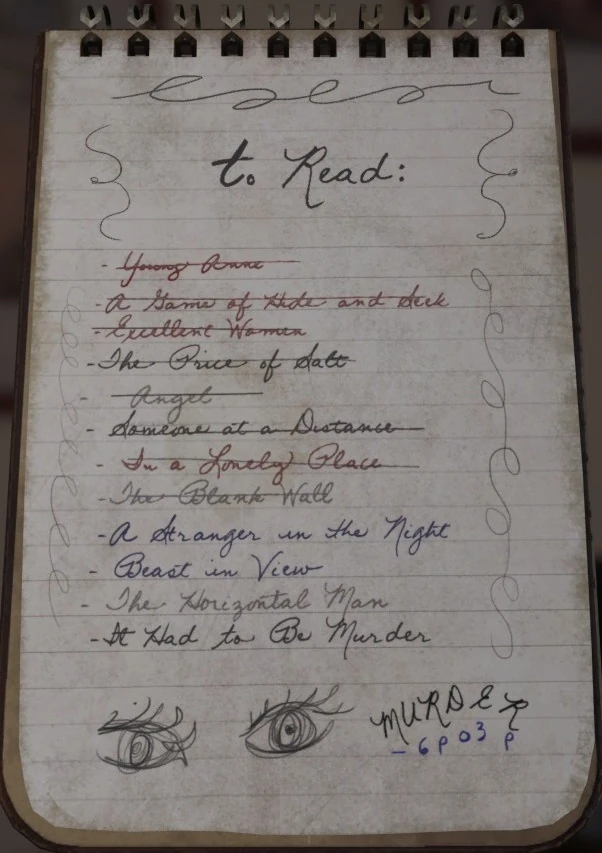 to Read:
- Young Anne
- A Game of Hide and Seek
- Excellent Women
- The Price of Salt
- Angel
- Someone at a Distance
- In a Lonely Place
- The Blank Wall
- A Stranger in the Night
- Beast in View
- The Horizontal Man
- It Had to Be Murder
MURDER
- 6 P 03 P